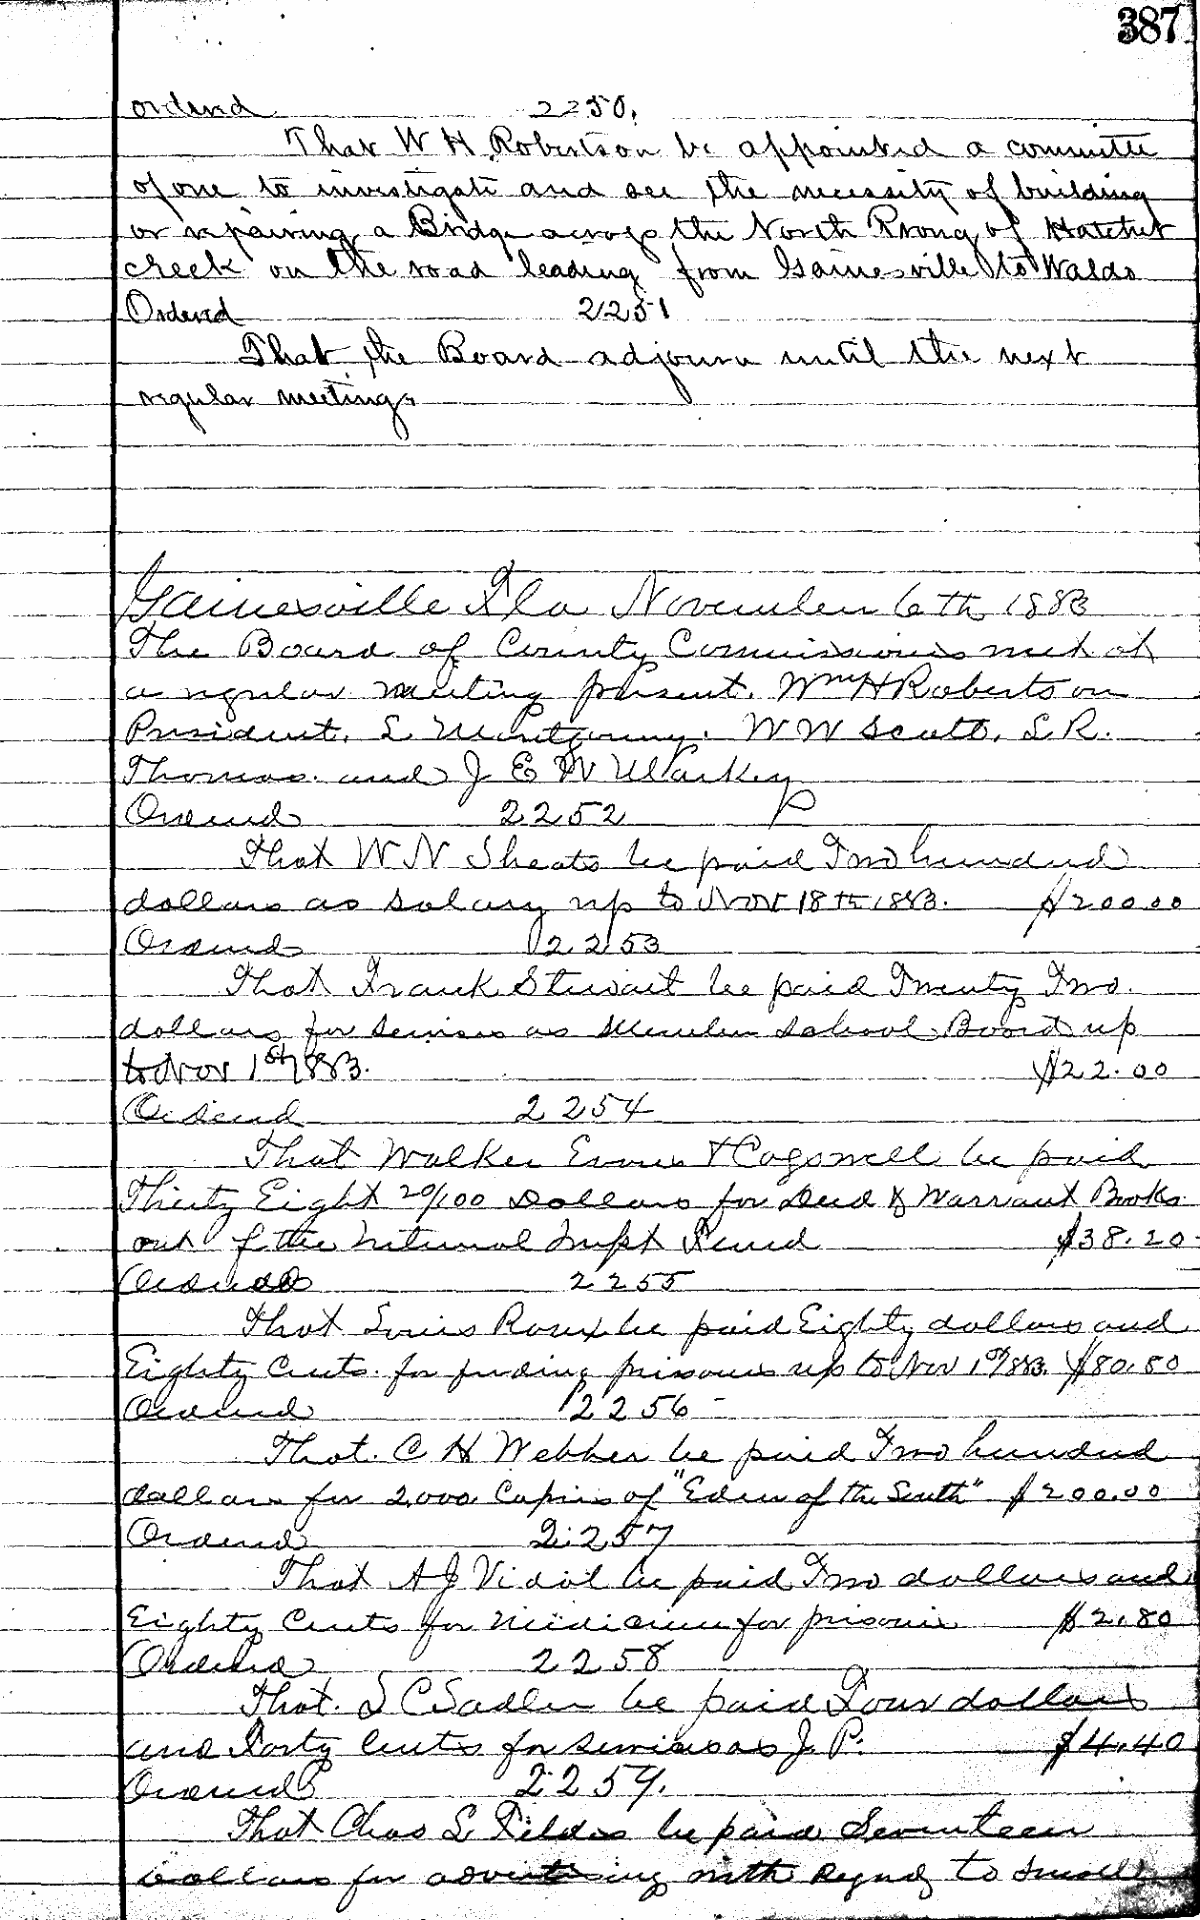 387
ordered 2250.
That W H Robertson be appointed a committe
of one to investigate and see the necessity of building
or repairing a Bridge across the North Prong of Hatchet
creek on the road leading from Gainesville to Waldo
Ordered 2251
That the Board adjourn until the next
regular meeting.
Gainesville Fla November 6th 1883
The Board of County Commissioners met at
a regular meeting present. Wm H Robertson
President. L Montgomery. W W Scott. S. R.
Thomas. and J E W
Ordered 2252
That W N Sheats be paid Two hundred
dollars as salary up to Nov 18th 1883. $200.00
Ordered 2253
That Frank Stewart be paid Twenty Two.
dollars for services as Member School Board up
to Nov 1st 1883. $22.00
Ordered 2254
That Walker Evans & Cogswell be paid
Thirty Eight 20/100 Dollars for Deed & Warrant Books
out of the Internal Impt Fund $38.20
Ordered 2255
That Louis Roux be paid Eighty dollars and
Eighty Cents. for feeding prisoners up to Nov 1st 1883. $80.80
Ordered 2256
That. C H Webber be paid Two hundred
dollars for 2,000 Copies of "Eden of the South" $200.00
Ordered 2257
That A J Vidal be paid Two dollars and
Eighty Cents for Medicine for prisoners $2.80
Ordered 2258
That. S C Sadler be paid Four dollars
and Forty Cents for services as J. P. $4.40
Ordered 2259.
That Chas L Fildes be paid Seventeen
Dollars for advertising with regard to Small